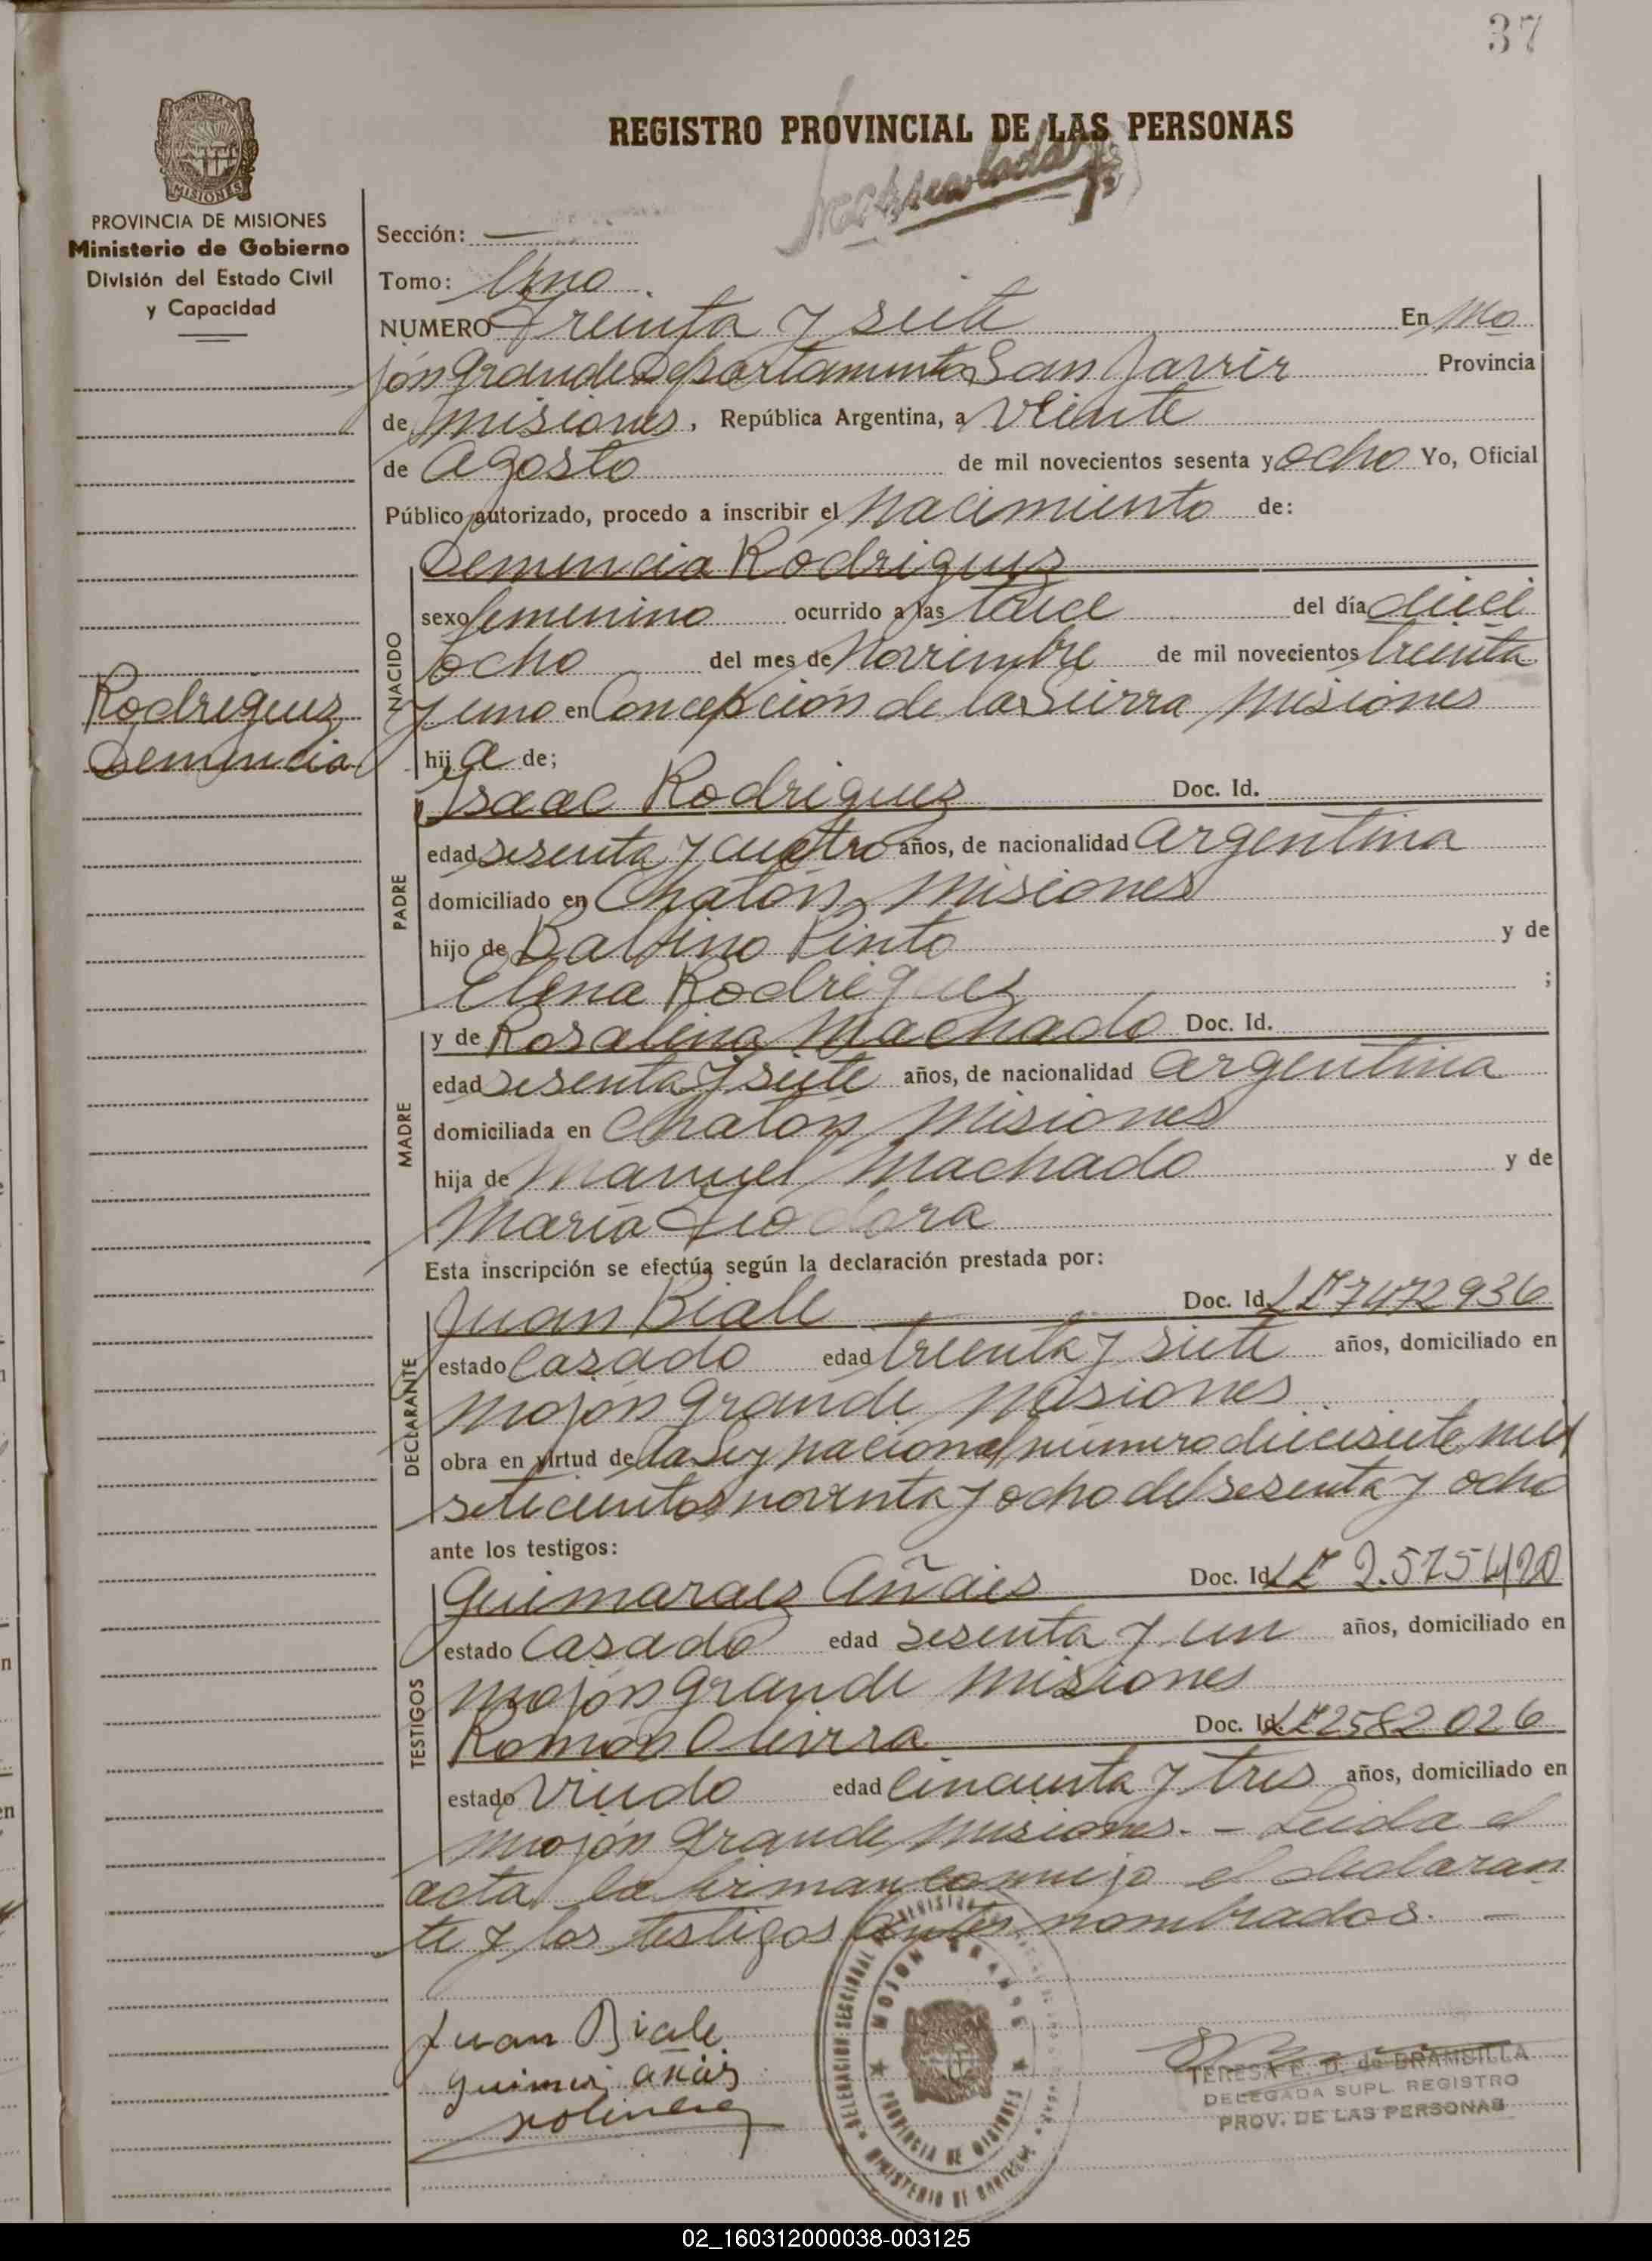 37
REGISTRO PROVINCIAL DE LAS PERSONAS
PROVINCIA DE MISIONES
Ministerio de Gobierno
División del Estado Civil
y Capacidad
Sección: —
Tomo: Uno
NUMERO Treinta y siete En Mo
jón Grande Departamento San Javier Provincia
de Misiones, República Argentina, a Veinte
de Agosto de mil novecientos sesenta y ocho Yo, Oficial
Público autorizado, procedo a inscribir el Nacimiento de:
Demencia Rodriguez
NACIDO
sexo femenino ocurrido a las trece del día dieci
ocho del mes de Noviembre de mil novecientos treinta
y uno en Concepción de la Sierra Misiones
Rodriguez
Demencia
hija de;
Isaac Rodriguez Doc. Id.
PADRE
edad sesenta y cuatro años, de nacionalidad Argentina
domiciliado en Chatón Misiones
hijo de Balbino Pinto y de
Elena Rodriguez ;
MADRE
y de Rosalina Machado Doc. Id.
edad sesenta y siete años, de nacionalidad Argentina
domiciliada en Chatón Misiones
hija de Manuel Machado y de
María Teodora
Esta inscripción se efectúa según la declaración prestada por:
DECLARANTE
Juan Biale Doc. Id. LE 7472936
estado Casado edad treinta y siete años, domiciliado en
Mojón Grande Misiones
obra en virtud de la Ley Nacional número diecisiete mil
setecientos noventa y ocho del sesenta y ocho
ante los testigos:
TESTIGOS
Guimaraez Añais Doc. Id LE 2.575420
estado Casado edad sesenta y un años, domiciliado en
Mojón Grande Misiones
Román Olivera Doc. Id. LE 2582026
estado Viudo edad Cincuenta y tres años, domiciliado en
Mojón Grande Misiones. - Leida el
acta la firman conmigo el declaran
te y los testigos antes nombrados. —
Juan Biale
DELEGACION SECCIONAL
MOJON GRANDE
PROVINCIA DE MISIONES
MINISTERIO DE GOBIERNO
TERESA E. D. de BRAMSILLA
DELEGADA SUPL. REGISTRO
PROV. DE LAS PERSONAS
02_160312000038-003125